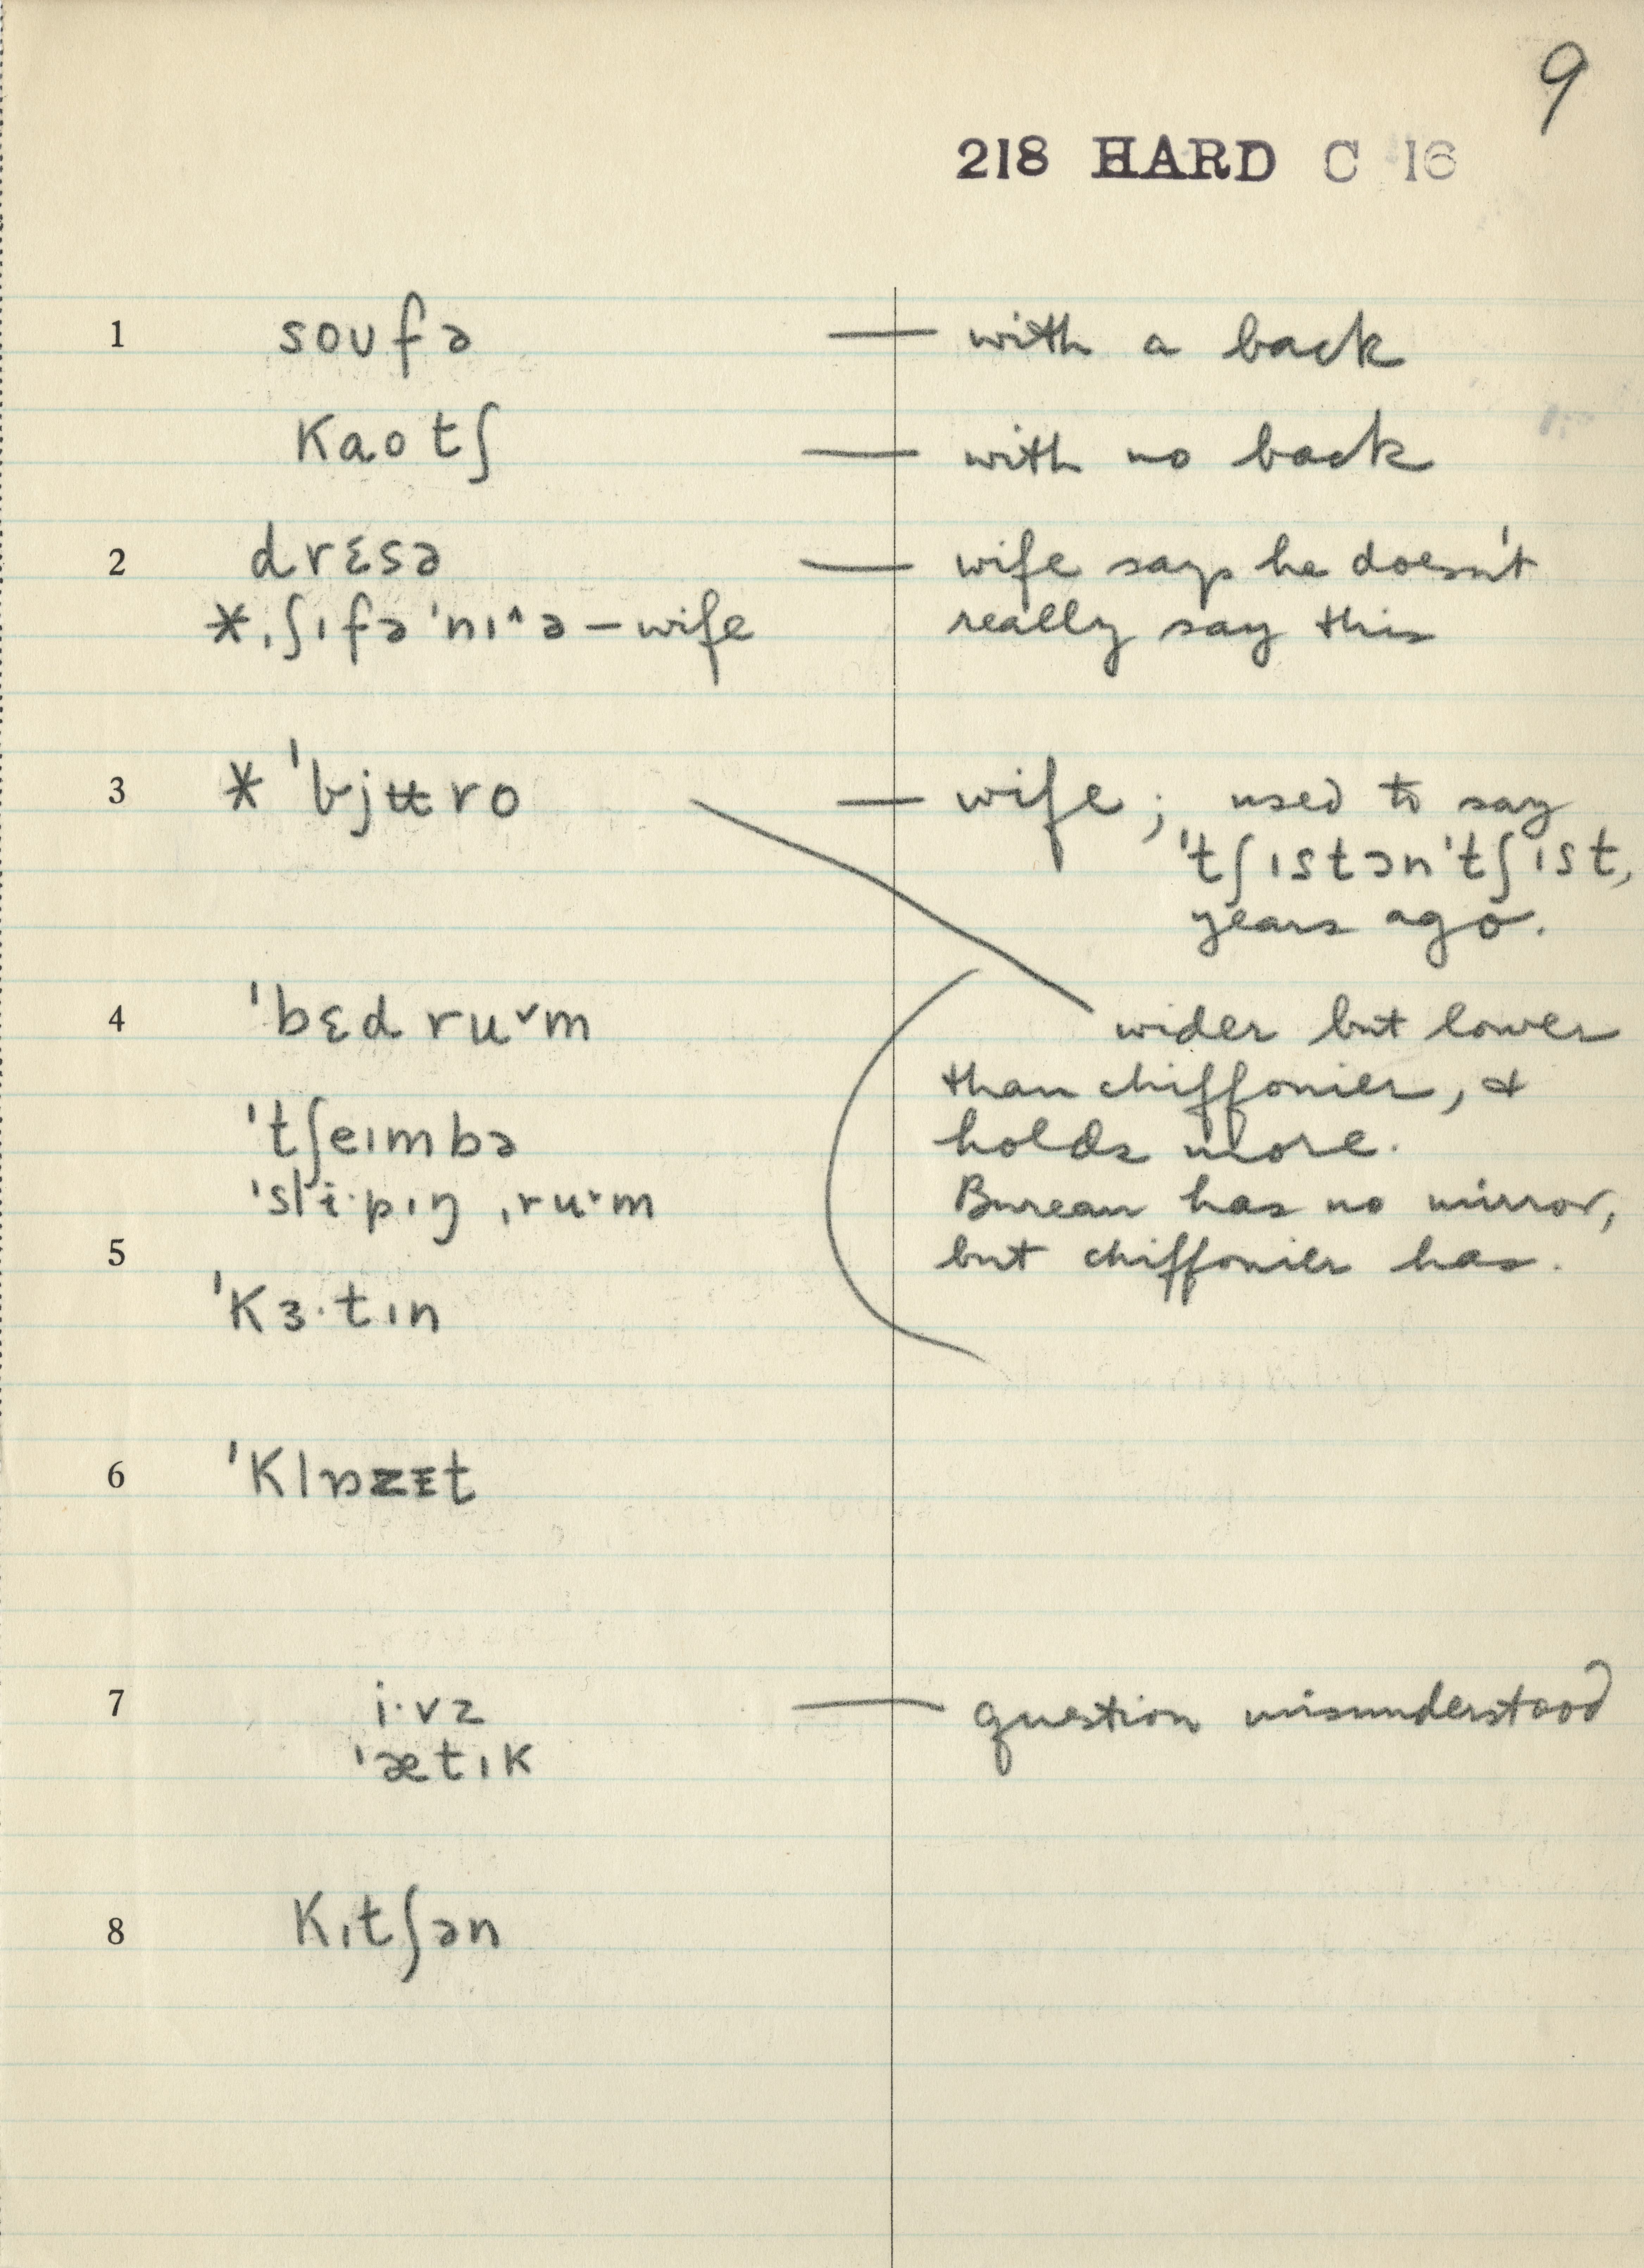 9
218 HARD C 16
1 soʊfə — with a back
kaotʃ — with no back
2 drɛsə — wife says he doesn't
*ˌʃɪfəˈnɪ˄ə – wife really say this
3 * ˈbjʉro — wife; used to say
ˈtʃɪstənˈtʃɪst,
years ago.
4 ˈbɛd ru˅m wider but lower
than chiffonier, &
ˈtʃeɪmbə holds more.
ˈsli·pɪŋ ˌru˅m Bureau has no mirror,
5 but chiffonier has.
ˈkɜ·tɪn
6 ˈklɒzɪt
7 i·vz — question misunderstood
ˈætɪk
8 kɪtʃən